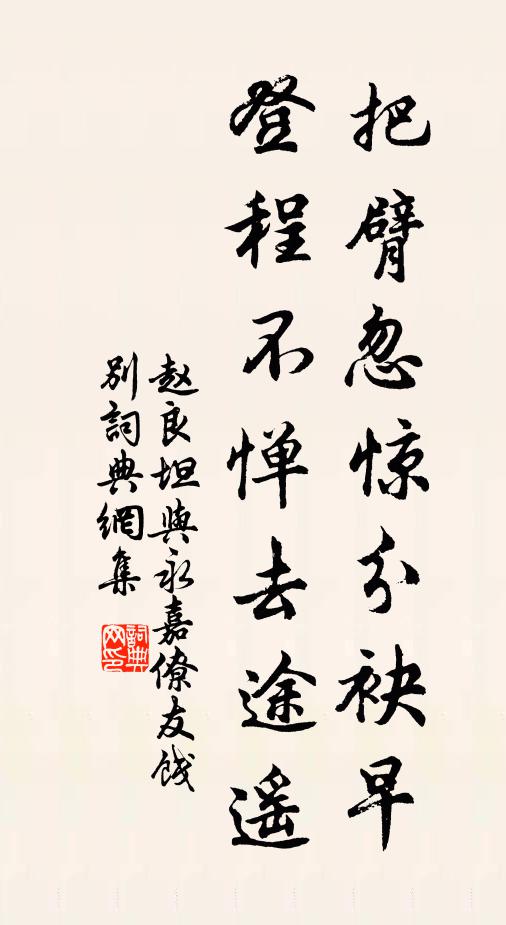 把臂忽惊分袂早
登程不惮去途遥
赵良坦與永嘉僚友饯
别詞典網集
詞典
网印